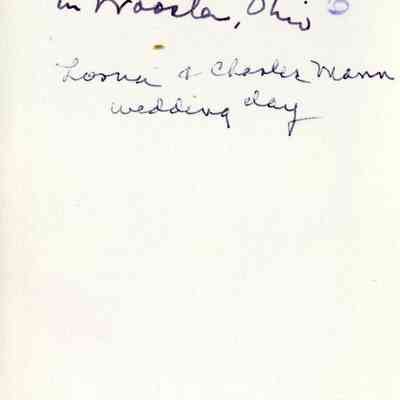 in Wooster, Ohio
Lorna & Charles Mann
wedding day